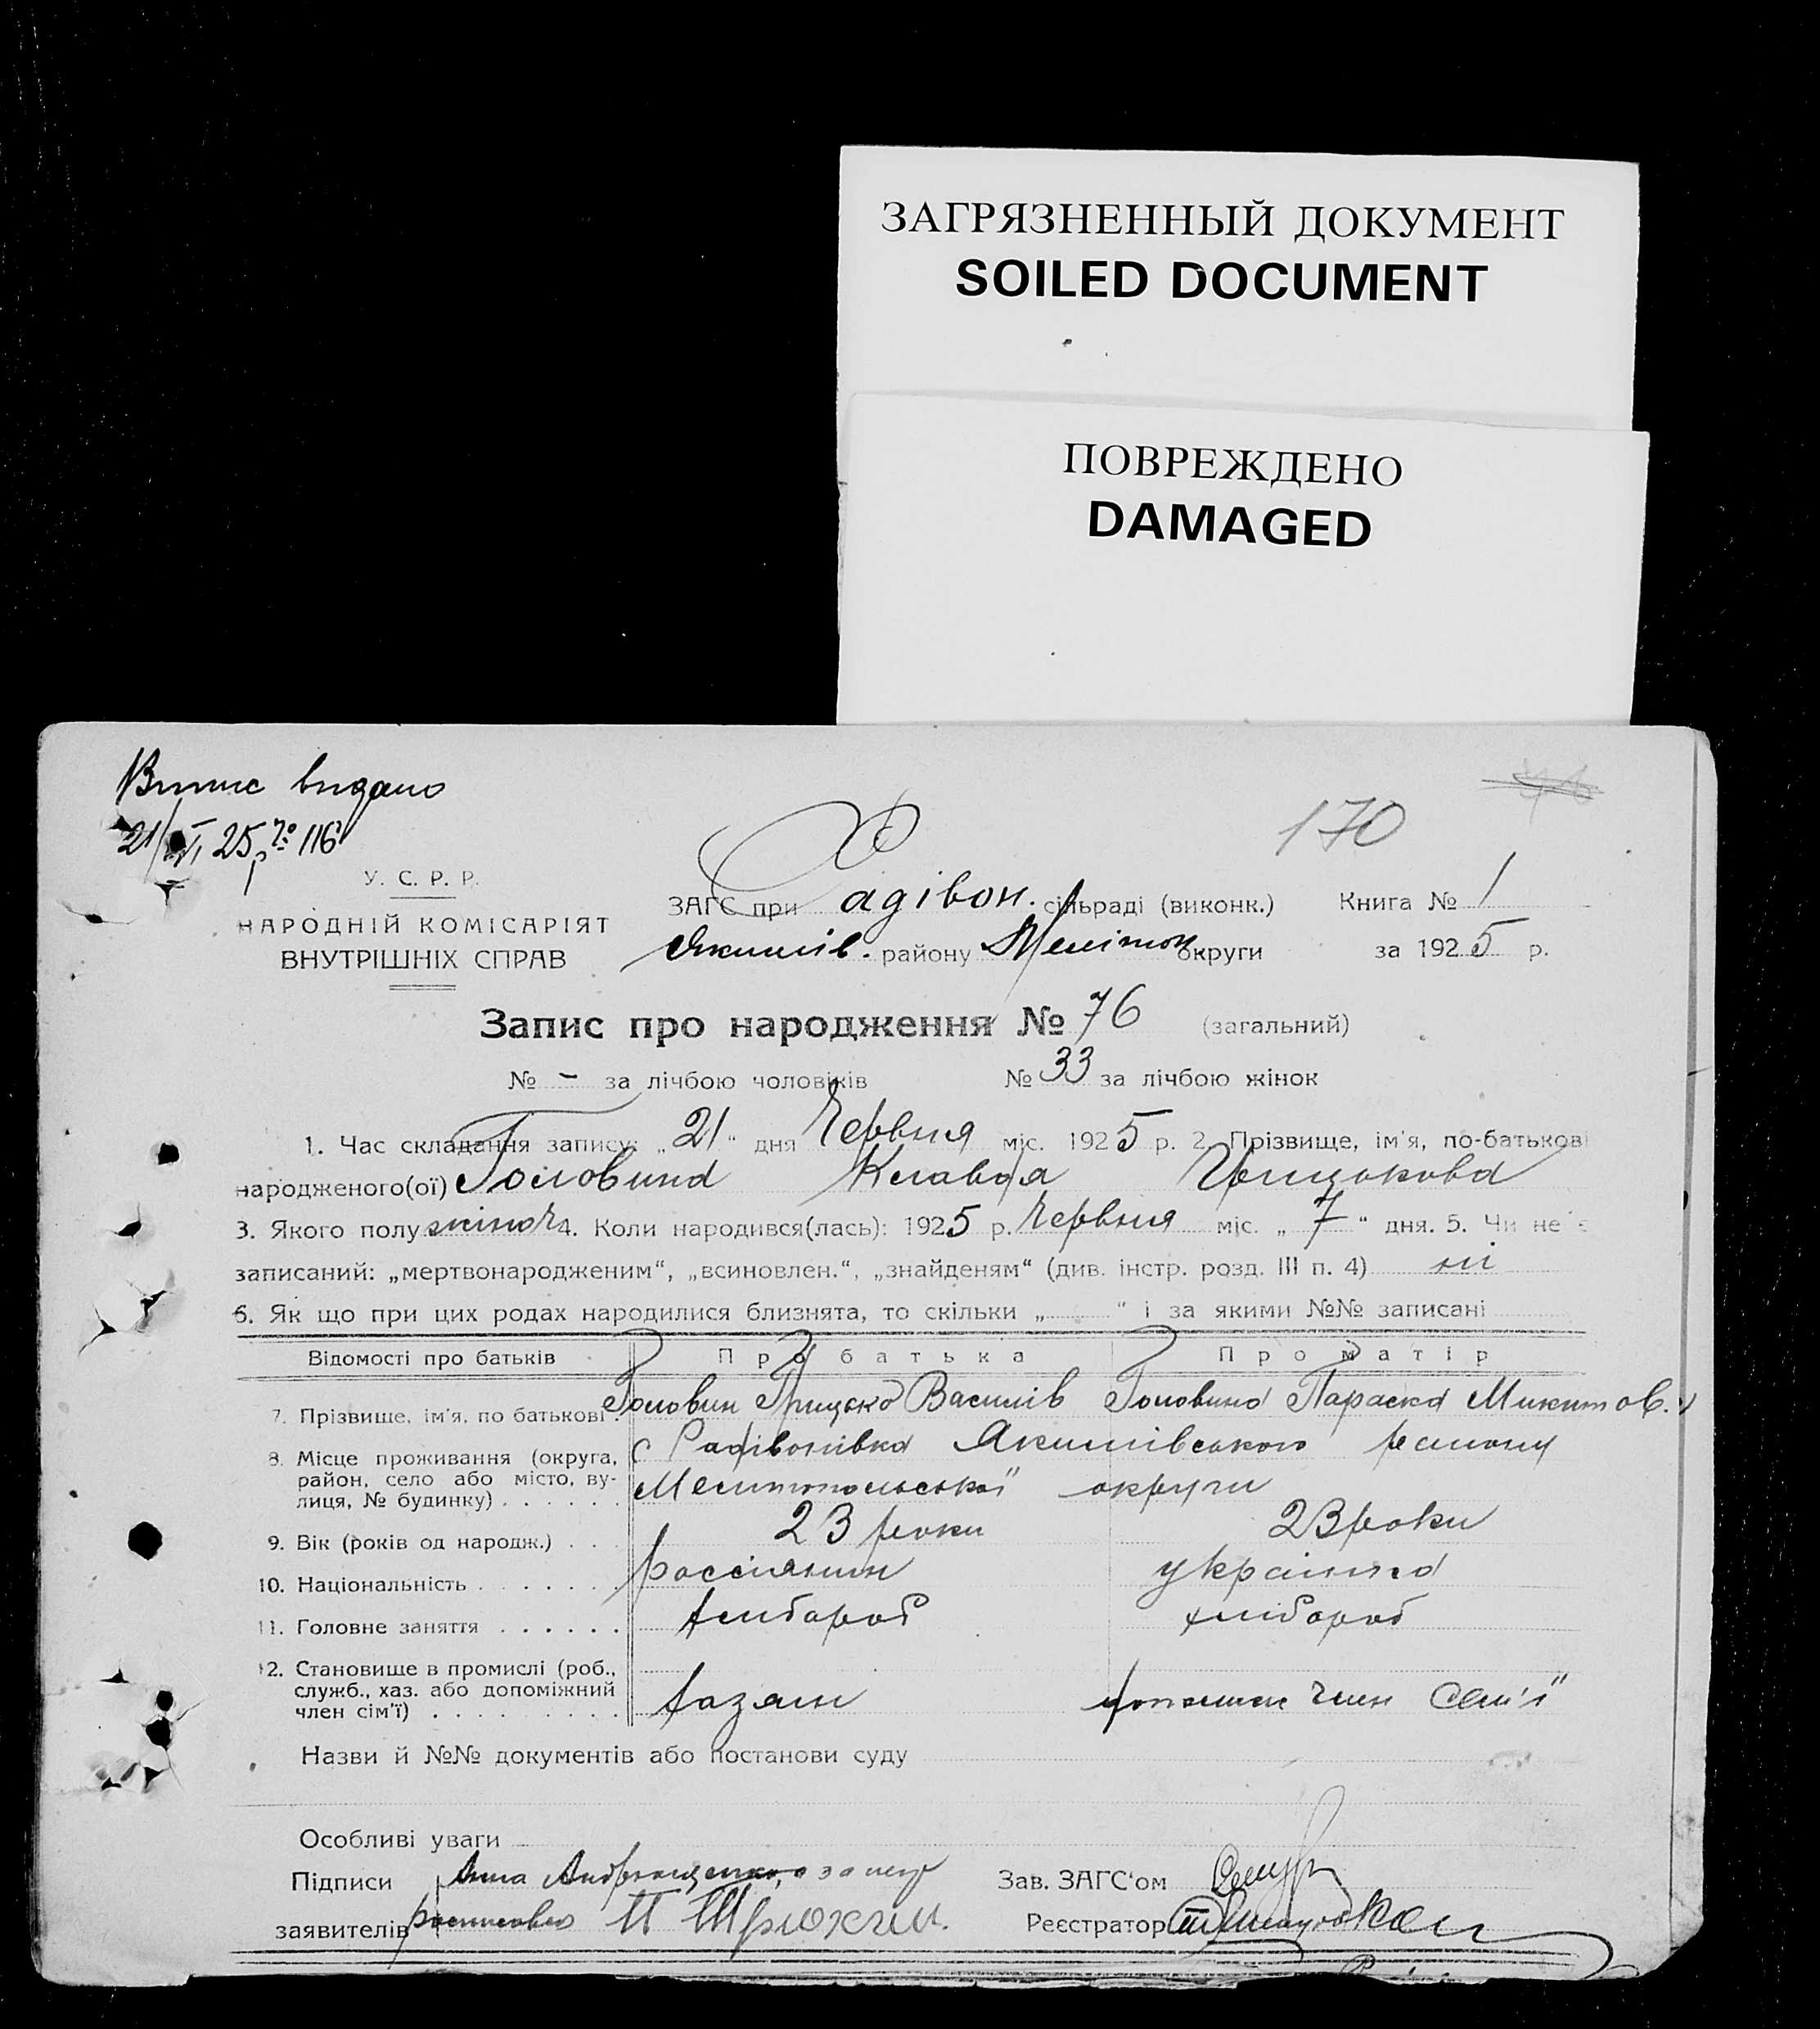 ЗАГРЯЗНЕННЫЙ ДОКУМЕНТ
SOILED DOCUMENT
ПОВРЕЖДЕНО
DAMAGED
Витис видано
21/VI 25 р № 116
170
У. С. Р. Р.
НАРОДНІЙ КОМІСАРІЯТ
ВНУТРІШНІХ СПРАВ
ЗАГС при Радівон. сільраді (виконк.) Книга № 1
Якимів. району Мелітоп округи за 1925 р.
Запис про народження № 76 (загальний)
№ - за лічбою чоловіків № 33 за лічбою жінок
1. Час складання запису: „21“ дня Червня міс. 1925 р. 2. Прізвище, ім'я, по-батькові
народженого(ої) Головина Клавдя Грицькова
3. Якого полу жіноч 4. Коли народився(лась): 1925 р. Червня міс. „7“ дня. 5. Чи не є
записаний: „мертвонародженим“, „всиновлен.“, „знайденям“ (див. інстр. розд. III п. 4) ні
6. Як що при цих родах народилися близнята, то скільки „ “ і за якими №№ записані
Відомості про батьків Про батька Про матір
7. Прізвище, ім'я, по батькові Головин Грицько Василів Головина Параска Микитов.
8. Місце проживання (округа, район, село або місто, вулиця, № будинку) . . . . . .
с Радівонівка Якимівського району
Мелитопольської округи
9. Вік (років од народж.) . . . 23 роки 23 роки
10. Національність . . . . . . . россіянин українка
11. Головне заняття . . . . . . хлібороб хлібороб
12. Становище в промислі (роб., служб., хаз. або допоміжний член сім'ї) . . . . . . . . . хазяін допоміж член семʼї
Назви й №№ документів або постанови суду
Особливі уваги
Підписи Анна Андрющенко, а за неї Зав. ЗАГС'ом
заявителів росписався П Трюхан. Реєстратор